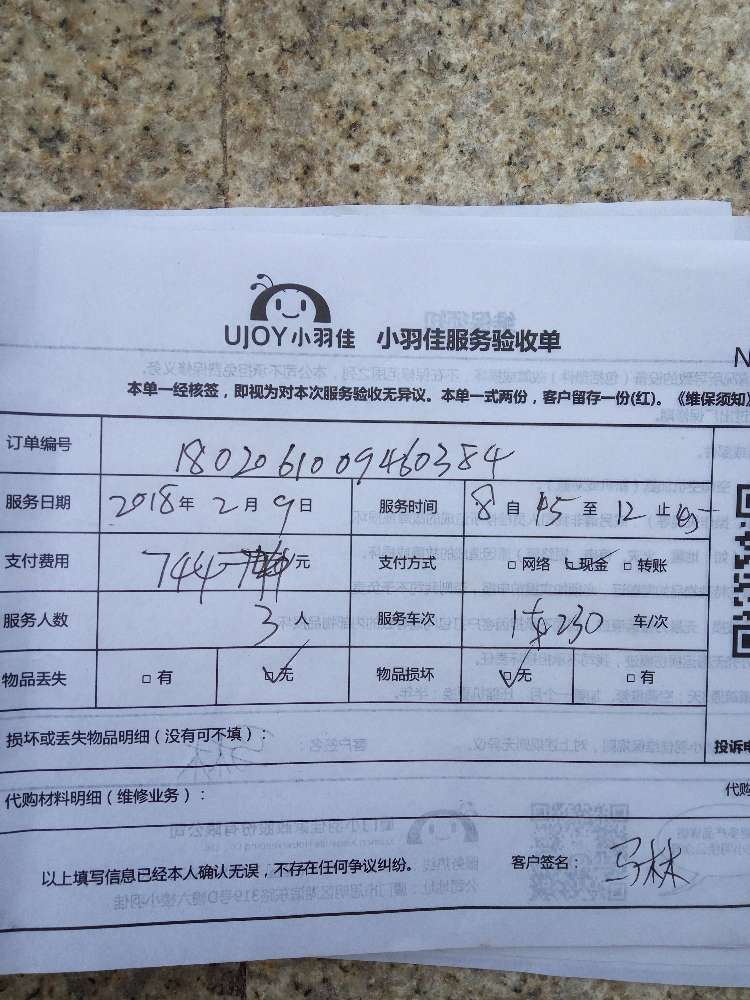 UJOY小羽佳 小羽佳服务验收单
本单一经核签，即视为对本次服务验收无异议。本单一式两份，客户留存一份(红)。《维保须知》
订单编号 1802061009460384
服务日期 2018年2月9日 服务时间 8自45至12止
支付费用 744元 支付方式 □网络 ☑现金 □转账
服务人数 3人 服务车次 230 车/次
物品丢失 □有 ☑无 物品损坏 ☑无 □有
损坏或丢失物品明细（没有可不填）： 投诉电
代购材料明细（维修业务）： 代购
以上填写信息已经本人确认无误，不存在任何争议纠纷。 客户签名： 马林